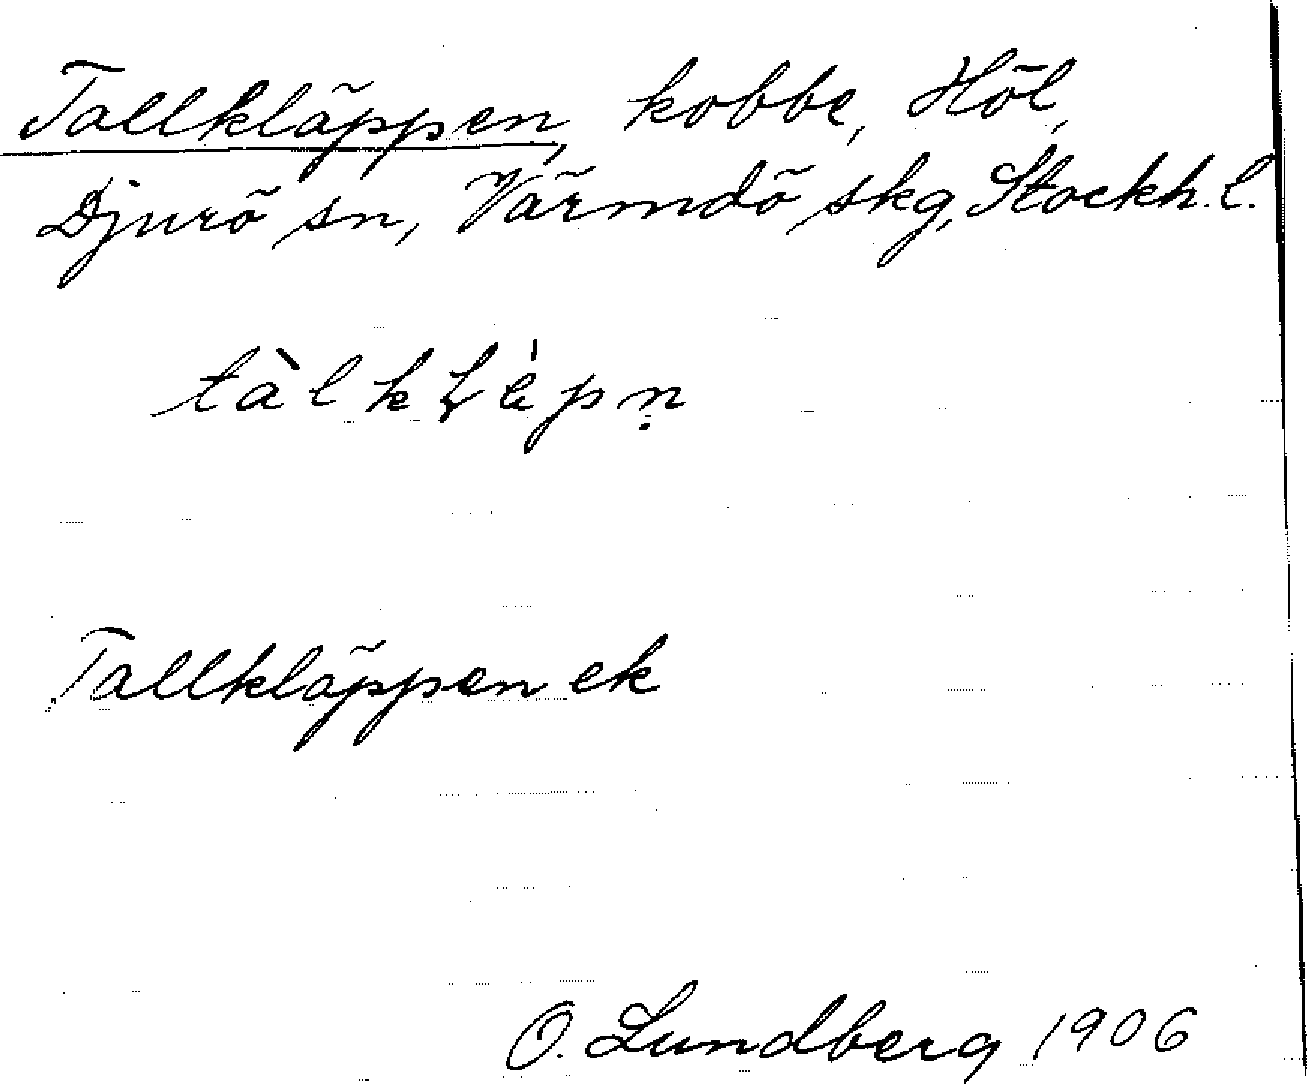 Tallkläppen, kobbe, Höl,
Djurö sn, Värmdö skg, Stockh. l.
tàlkḷèpṇ
Tallkläppen ek
O. Lundberg 1906